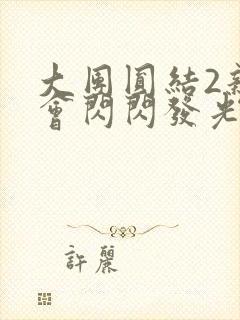 大團圓結2新
會閃閃發光
許麗